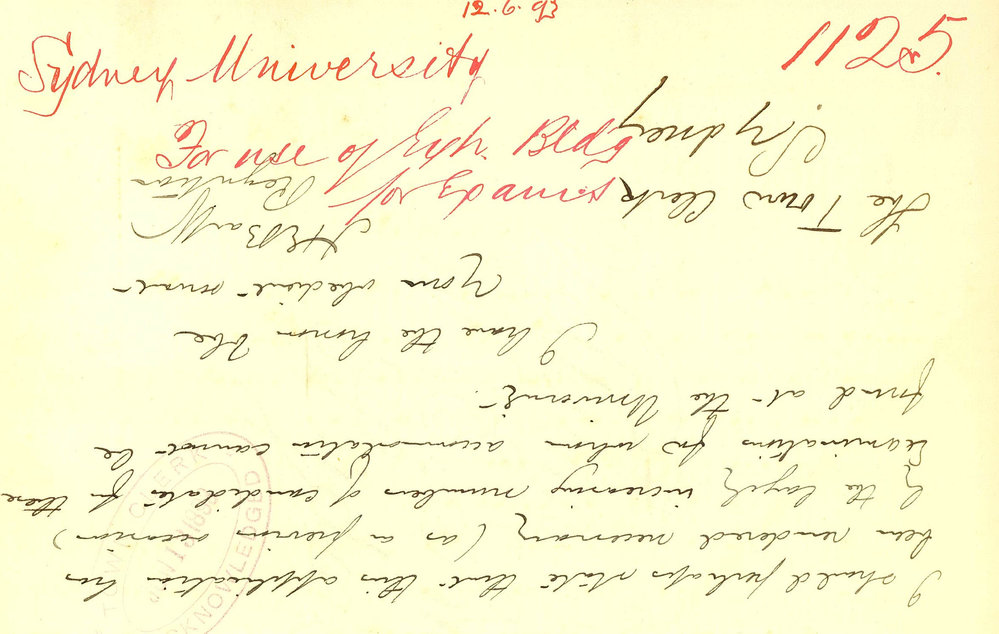 12.6.93
Sydney University
1125
re
For use of Exhn Bldg
for exams
I should perhaps state that this application has
been rendered necessary (as on previous occasions)
by the largely increasing numbers of candidates for these
examinations for whom accommodation cannot be
found at the University.
I have the honor to be
Your obedient servant
H E Barff
Registrar
The Town Clerk
Sydney
TOWN CLERK
ACKNOWLEDGED